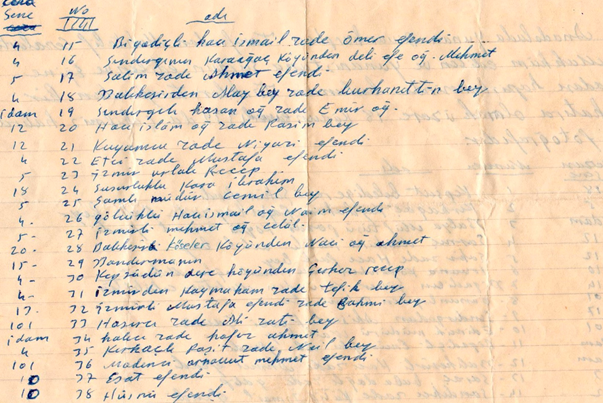 Sene No adı
4 15 Bigadiçli hacı ismail zade ömer efendi
4 16 Sındırgının Karaağaç Köyünden deli efe oğ. Mehmet
5 17 Salim zade Ahmet efendi
4 18 Balıkesirden Alay bey zade burhanettin bey
idam 19 Sındırgılı hasan oğ zade Emir oğ.
12 20 Hacı islâm oğ zade Rasim bey
12 21 Kuyumcu zade Niyazi efendi
4 22 Etci zade Mustafa efendi
5 23 izmir urlalı Recep
18 24 Susurluklu Kara ibrahim
5 25 Şamlı müdür Cemil bey
4 - 26 gölcüklü Hacı ismail oğ Naim efendi
5 - 27 izmirli mehmet oğ celâl
20 - 28 Balıkesir Köseler Köyünden Naci oğ ahmet
15 - 29 Bandırmanın
4 - 30 Kepsüdün dere köyünden Çerkez recep
4 - 31 izmirden Kaymakam zade Tefik bey
17 - 32 izmirli Mustafa efendi zade Rahmi bey
101 33 Hasırcı zade Ali bey
idam 34 hafız ahmet
4 35 Kırkağaçlı Raşit zade Nail bey
101 36 Madenci arnavut mehmet efendi
10 37 Esat efendi
10 38 Hüsnü efendi